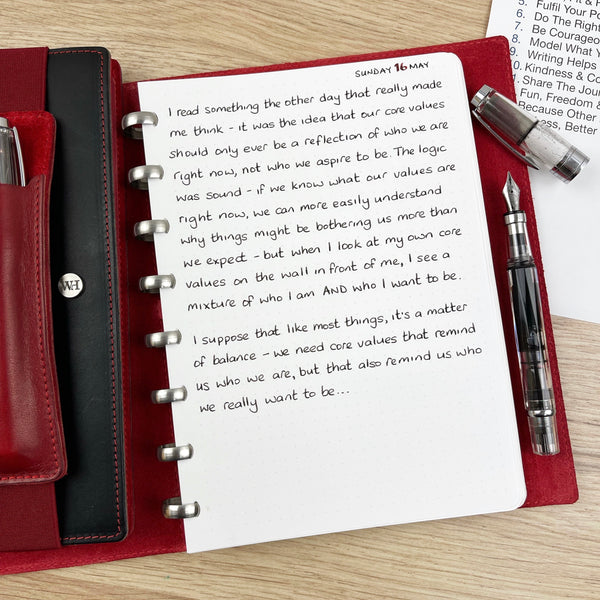 SUNDAY 16 MAY
I read something the other day that really made
me think - it was the idea that our core values
should only ever be a reflection of who we are
right now, not who we aspire to be. The logic
was sound - if we know what our values are
right now, we can more easily understand
why things might be bothering us more than
we expect - but when I look at my own core
values on the wall in front of me, I see a
mixture of who I am AND who I want to be.
I suppose that like most things, it's a matter
of balance - we need core values that remind
us who we are, but that also remind us who
we really want to be...
5.
6. Fulfil Your
7. Do The Right
8. Be Courageo
9. Model What Y
10. Writing Helps
Kindness & Co
Share The Jour
Fun, Freedom &
Because Other
ess, Better
WH